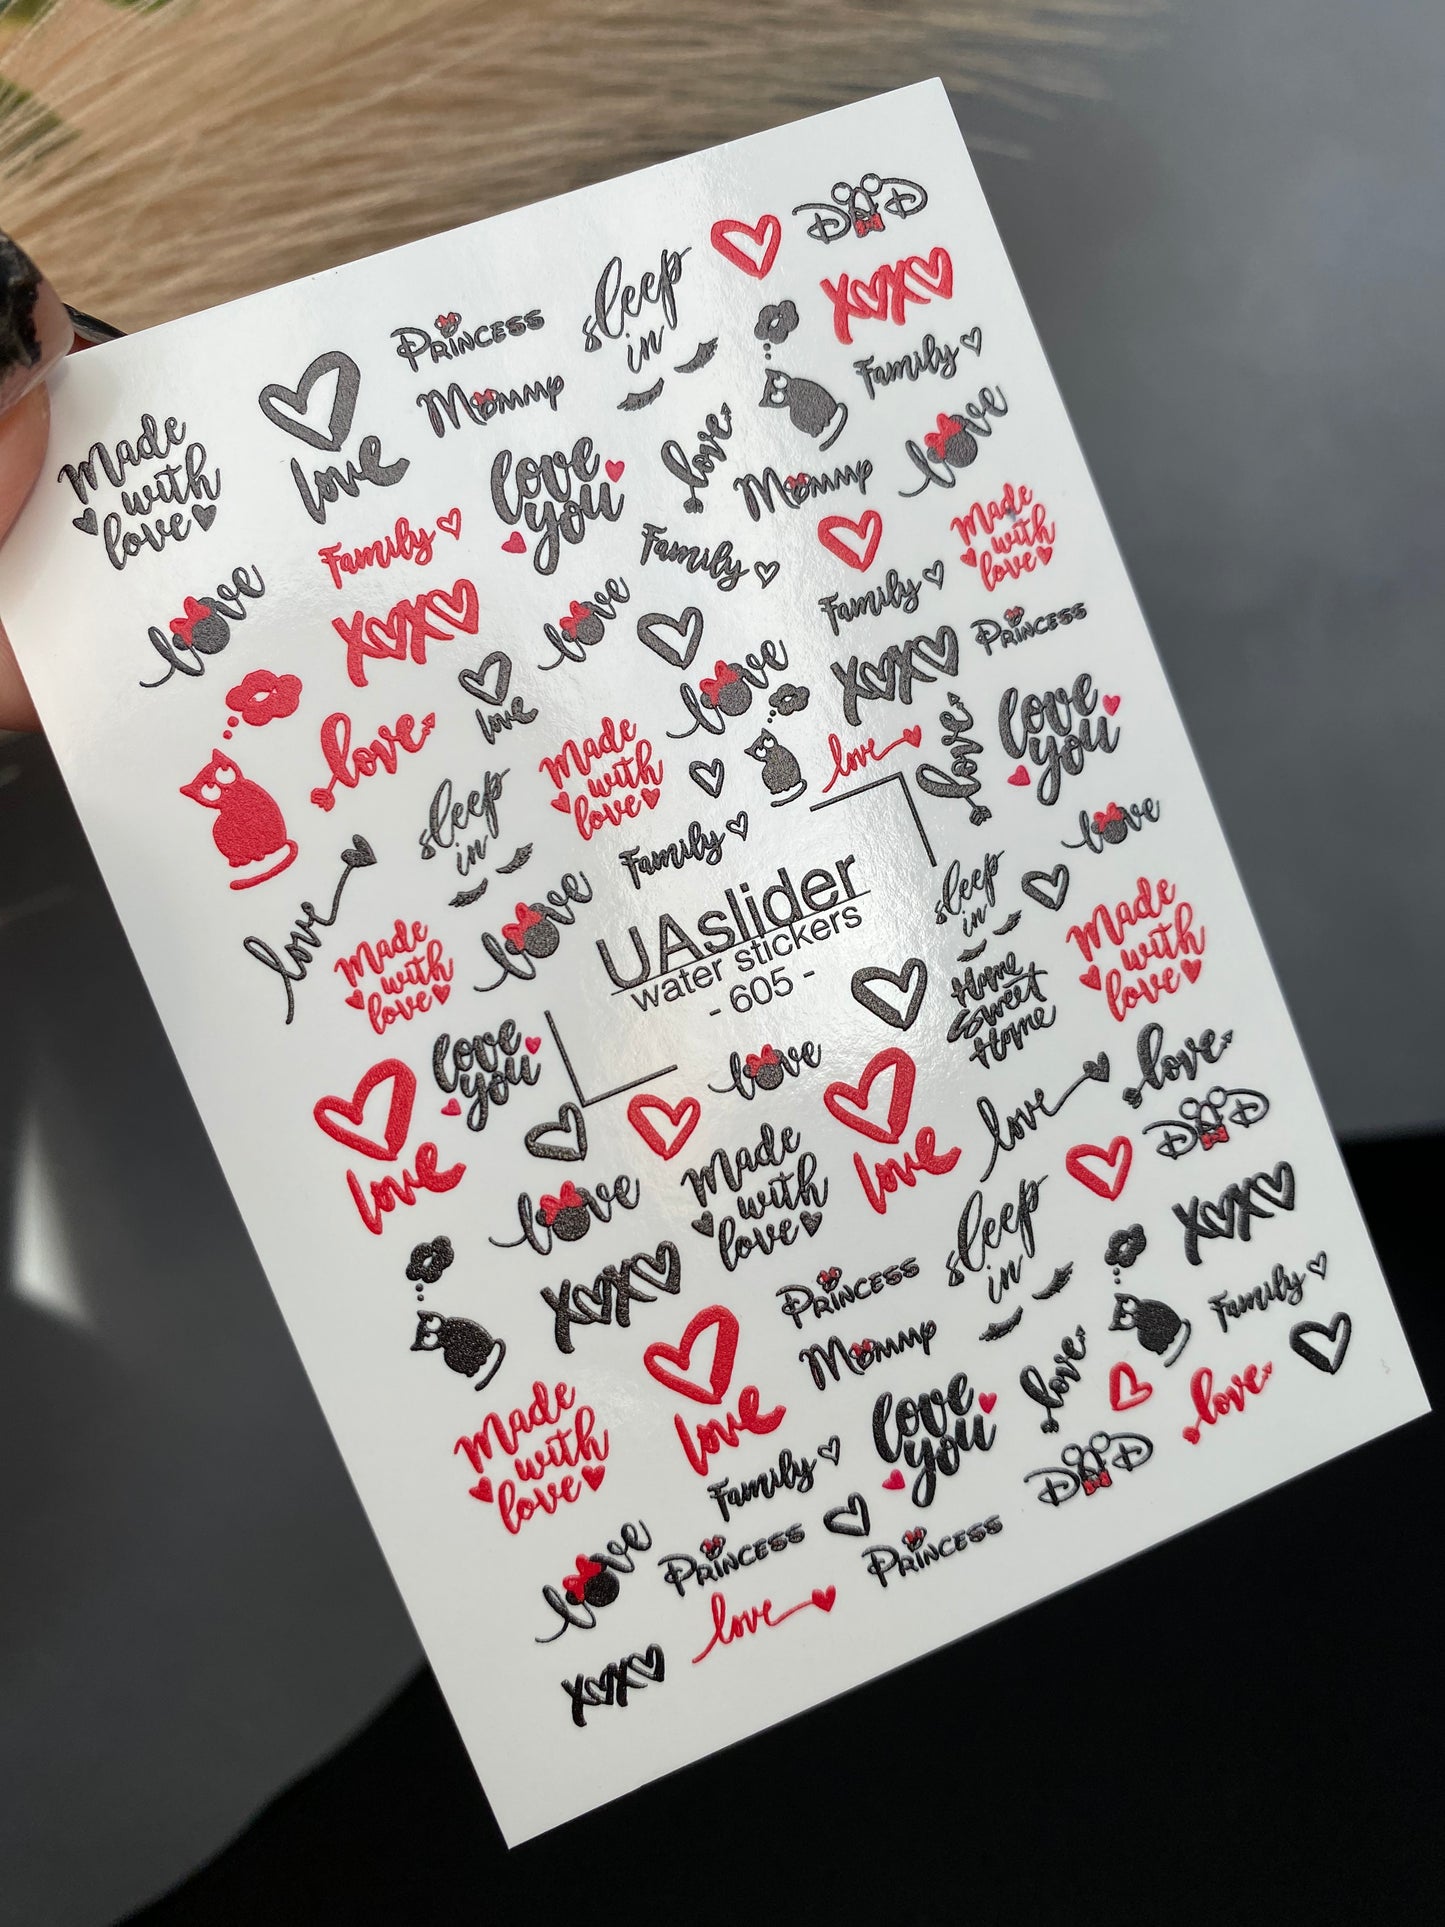 DAD
sleep
in
Princess
Mommy
xoxo
Family
love
Made
with
love
love
love
you
love
Mommy
Family
Family
Made
with
love
love
xoxo
love
Family
Princess
love
love
love
xoxo
love
you
love
Made
with
love
love
love
sleep
in
Family
love
love
love
Made
with
love
UAslider
water stickers
- 605 -
sleep
in
Made
with
love
Home
Sweet
Home
love
you
love
love
love
love
love
DAD
love
Made
with
love
sleep
in
xoxo
xoxo
Princess
Mommy
Family
love
love
love
Made
with
love
love
you
Family
DAD
love
Princess
Princess
love
xoxo